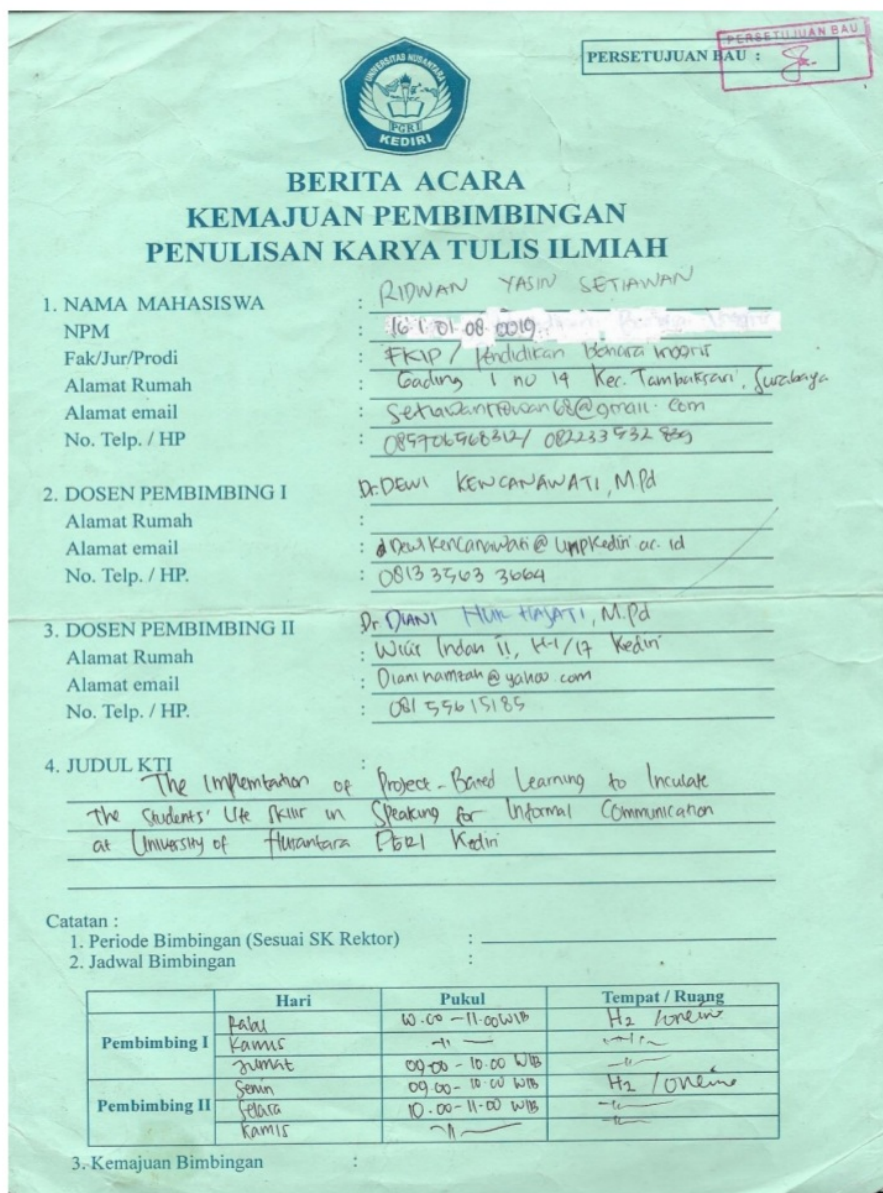 PERSETUJUAN BAU
PERSETUJUAN BAU :
UNIVERSITAS NUSANTARA
PGRI
KEDIRI
BERITA ACARA
KEMAJUAN PEMBIMBINGAN
PENULISAN KARYA TULIS ILMIAH
1. NAMA MAHASISWA : RIDWAN YASIN SETIAWAN
NPM : 16 1 01 08 0019
Fak/Jur/Prodi : FKIP / Pendidikan Bahasa Inggris
Alamat Rumah : Gading 1 no 14 Kec. Tambaksari, Surabaya
Alamat email : @gmail.com
No. Telp. / HP :
2. DOSEN PEMBIMBING I Dr. DEWI KENCANAWATI, M.Pd
Alamat Rumah :
Alamat email : Dewikencanawati@unpkediri.ac.id
No. Telp. / HP. : 0813 3563 3664
3. DOSEN PEMBIMBING II Dr. DIANI NUR HAJATI, M.Pd
Alamat Rumah : Wilis Indah II, H-1/17 Kediri
Alamat email : Dianihamzah@yahoo.com
No. Telp. / HP. : 081 55615185
4. JUDUL KTI :
The Implemtation of Project-Based Learning to Inculate
The Students' Life Skills in Speaking for Informal Communication
at University of Nusantara PGRI Kediri
Catatan :
1. Periode Bimbingan (Sesuai SK Rektor) :
2. Jadwal Bimbingan :
Hari Pukul Tempat / Ruang
Rabu 10.00 - 11.00 WIB H2 / online
Pembimbing I Kamis -11-  -11-
Jumat 09.00 - 10.00 WIB -11-
Senin 09.00 - 10.00 WIB H2 / online
Pembimbing II Selasa 10.00 - 11.00 WIB -11-
Kamis -11- -11-
3. Kemajuan Bimbingan :